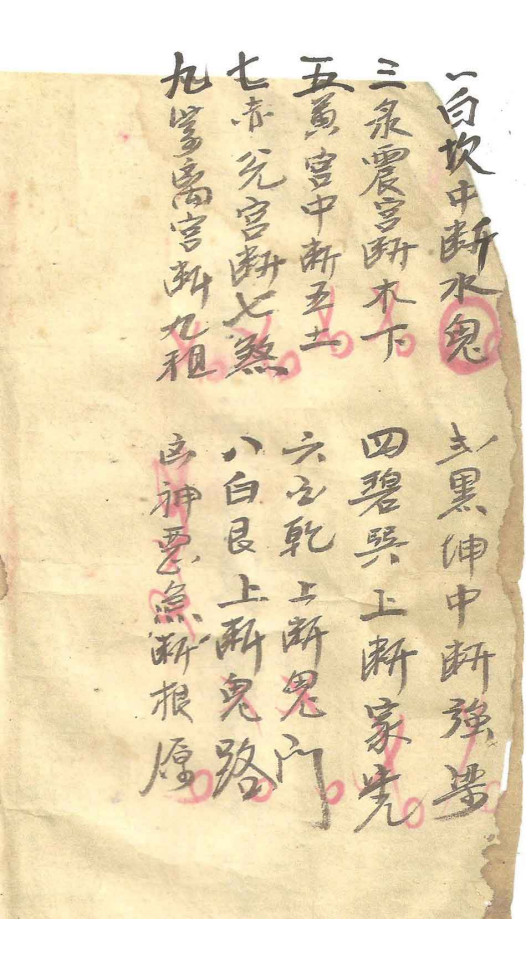 一白坎中断水鬼
弍黑坤中断強梁
三录震宫断木下
四碧巽上断家先
五黄宫中断五土
六白乾上断鬼门
七赤兑宫断七煞
八白艮上断鬼路
九紫离宫断九祖
凶神恶煞断根原